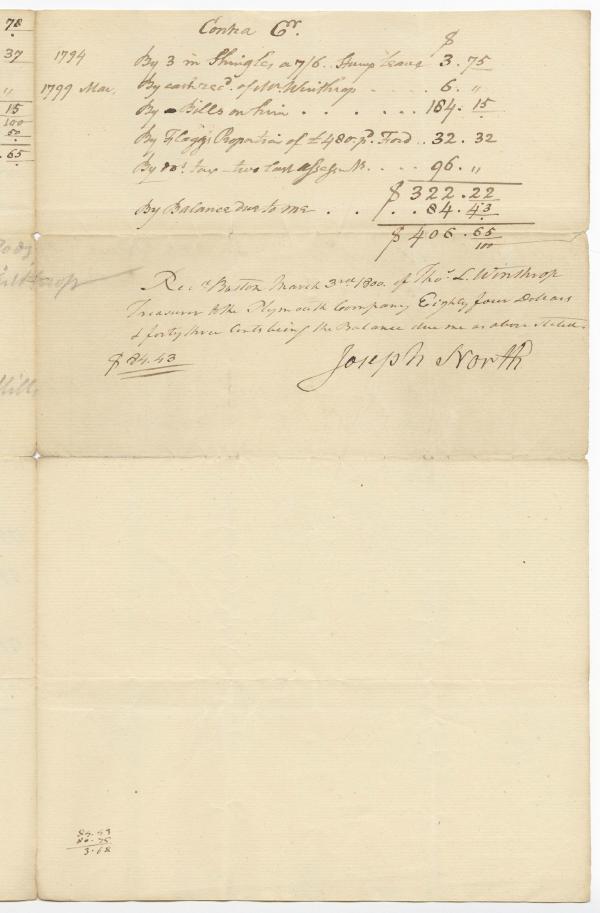 78
37
"
15
100
50
.65
Contra Cr.
$
1794 By 3 m Shingles a 7/6 3.75
1799 Mar. By cash recd. of Mr Winthrop - - - - 6. "
By Bills on him . . . . . . 184.15
By Flaggs Proportion of £480. pd. Ford .. 32.32
By do. tax two last assessmts. - - - 96. "
$ 322.22
By Balance due to me . . . . 84.43
$ 406.65/100
Recd. Boston March 3rd 1800. of Thos. L. Winthrop
Treasurer to the Plymouth Company Eighty four Dollars
& forty three Cents being the Balance due me as above stated.
$ 84.43 Joseph North
84.43
80.75
3.68